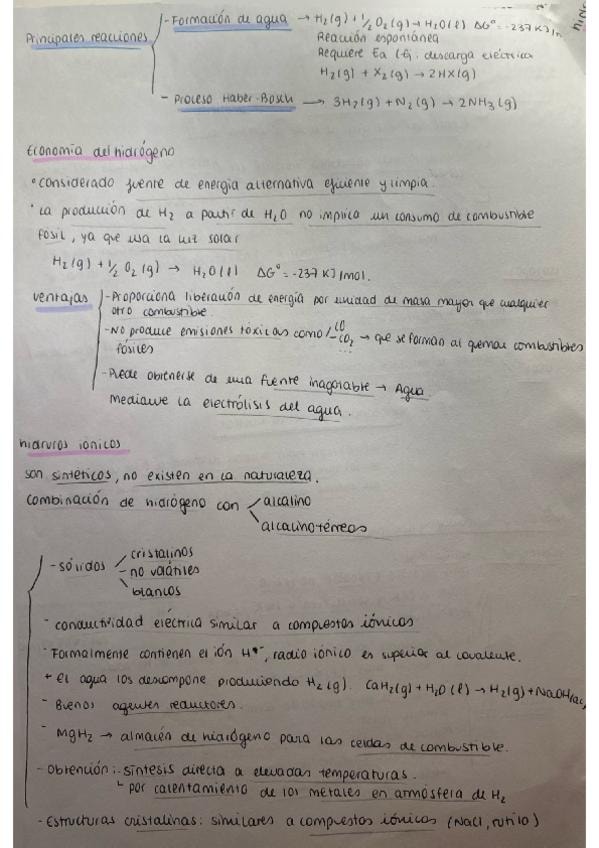 Principales reacciones
- Formación de agua → H₂(g) + ½ O₂(g) → H₂O(l) ΔG° = -237 KJ/m
Reacción espontánea
Requiere Ea: descarga eléctrica
H₂(g) + X₂(g) → 2HX(g)
- Proceso Haber-Bosch → 3H₂(g) + N₂(g) → 2NH₃(g)
Economía del hidrógeno
° considerado fuente de energía alternativa eficiente y limpia.
· La producción de H₂ a partir de H₂O no implica un consumo de combustible
fósil, ya que usa la luz solar
H₂(g) + ½ O₂(g) → H₂O(l) ΔG° = -237 KJ/mol.
ventajas
- Proporciona liberación de energía por unidad de masa mayor que cualquier
otro combustible.
- No produce emisiones tóxicas como CO CO₂ ... → que se forman al quemar combustibles
fósiles
- Puede obtenerse de una fuente inagotable → Agua.
Mediante la electrólisis del agua.
hidruros iónicos
son sintéticos, no existen en la naturaleza.
combinación de hidrógeno con alcalino
alcalinotérreos
- sólidos
cristalinos
no volátiles
blancos
- conductividad eléctrica similar a compuestos iónicos
- Formalmente contienen el ión H⁻, radio iónico es superior al covalente.
+ El agua los descompone produciendo H₂(g). CaH₂(g) + H₂O(l) → H₂(g) + NaOH(ac)
- Buenos agentes reductores.
- MgH₂ → almacén de hidrógeno para las celdas de combustible.
- Obtención: - síntesis directa a elevadas temperaturas.
por calentamiento de los metales en atmósfera de H₂
- Estructuras cristalinas: similares a compuestos iónicos (NaCl, rutilo)